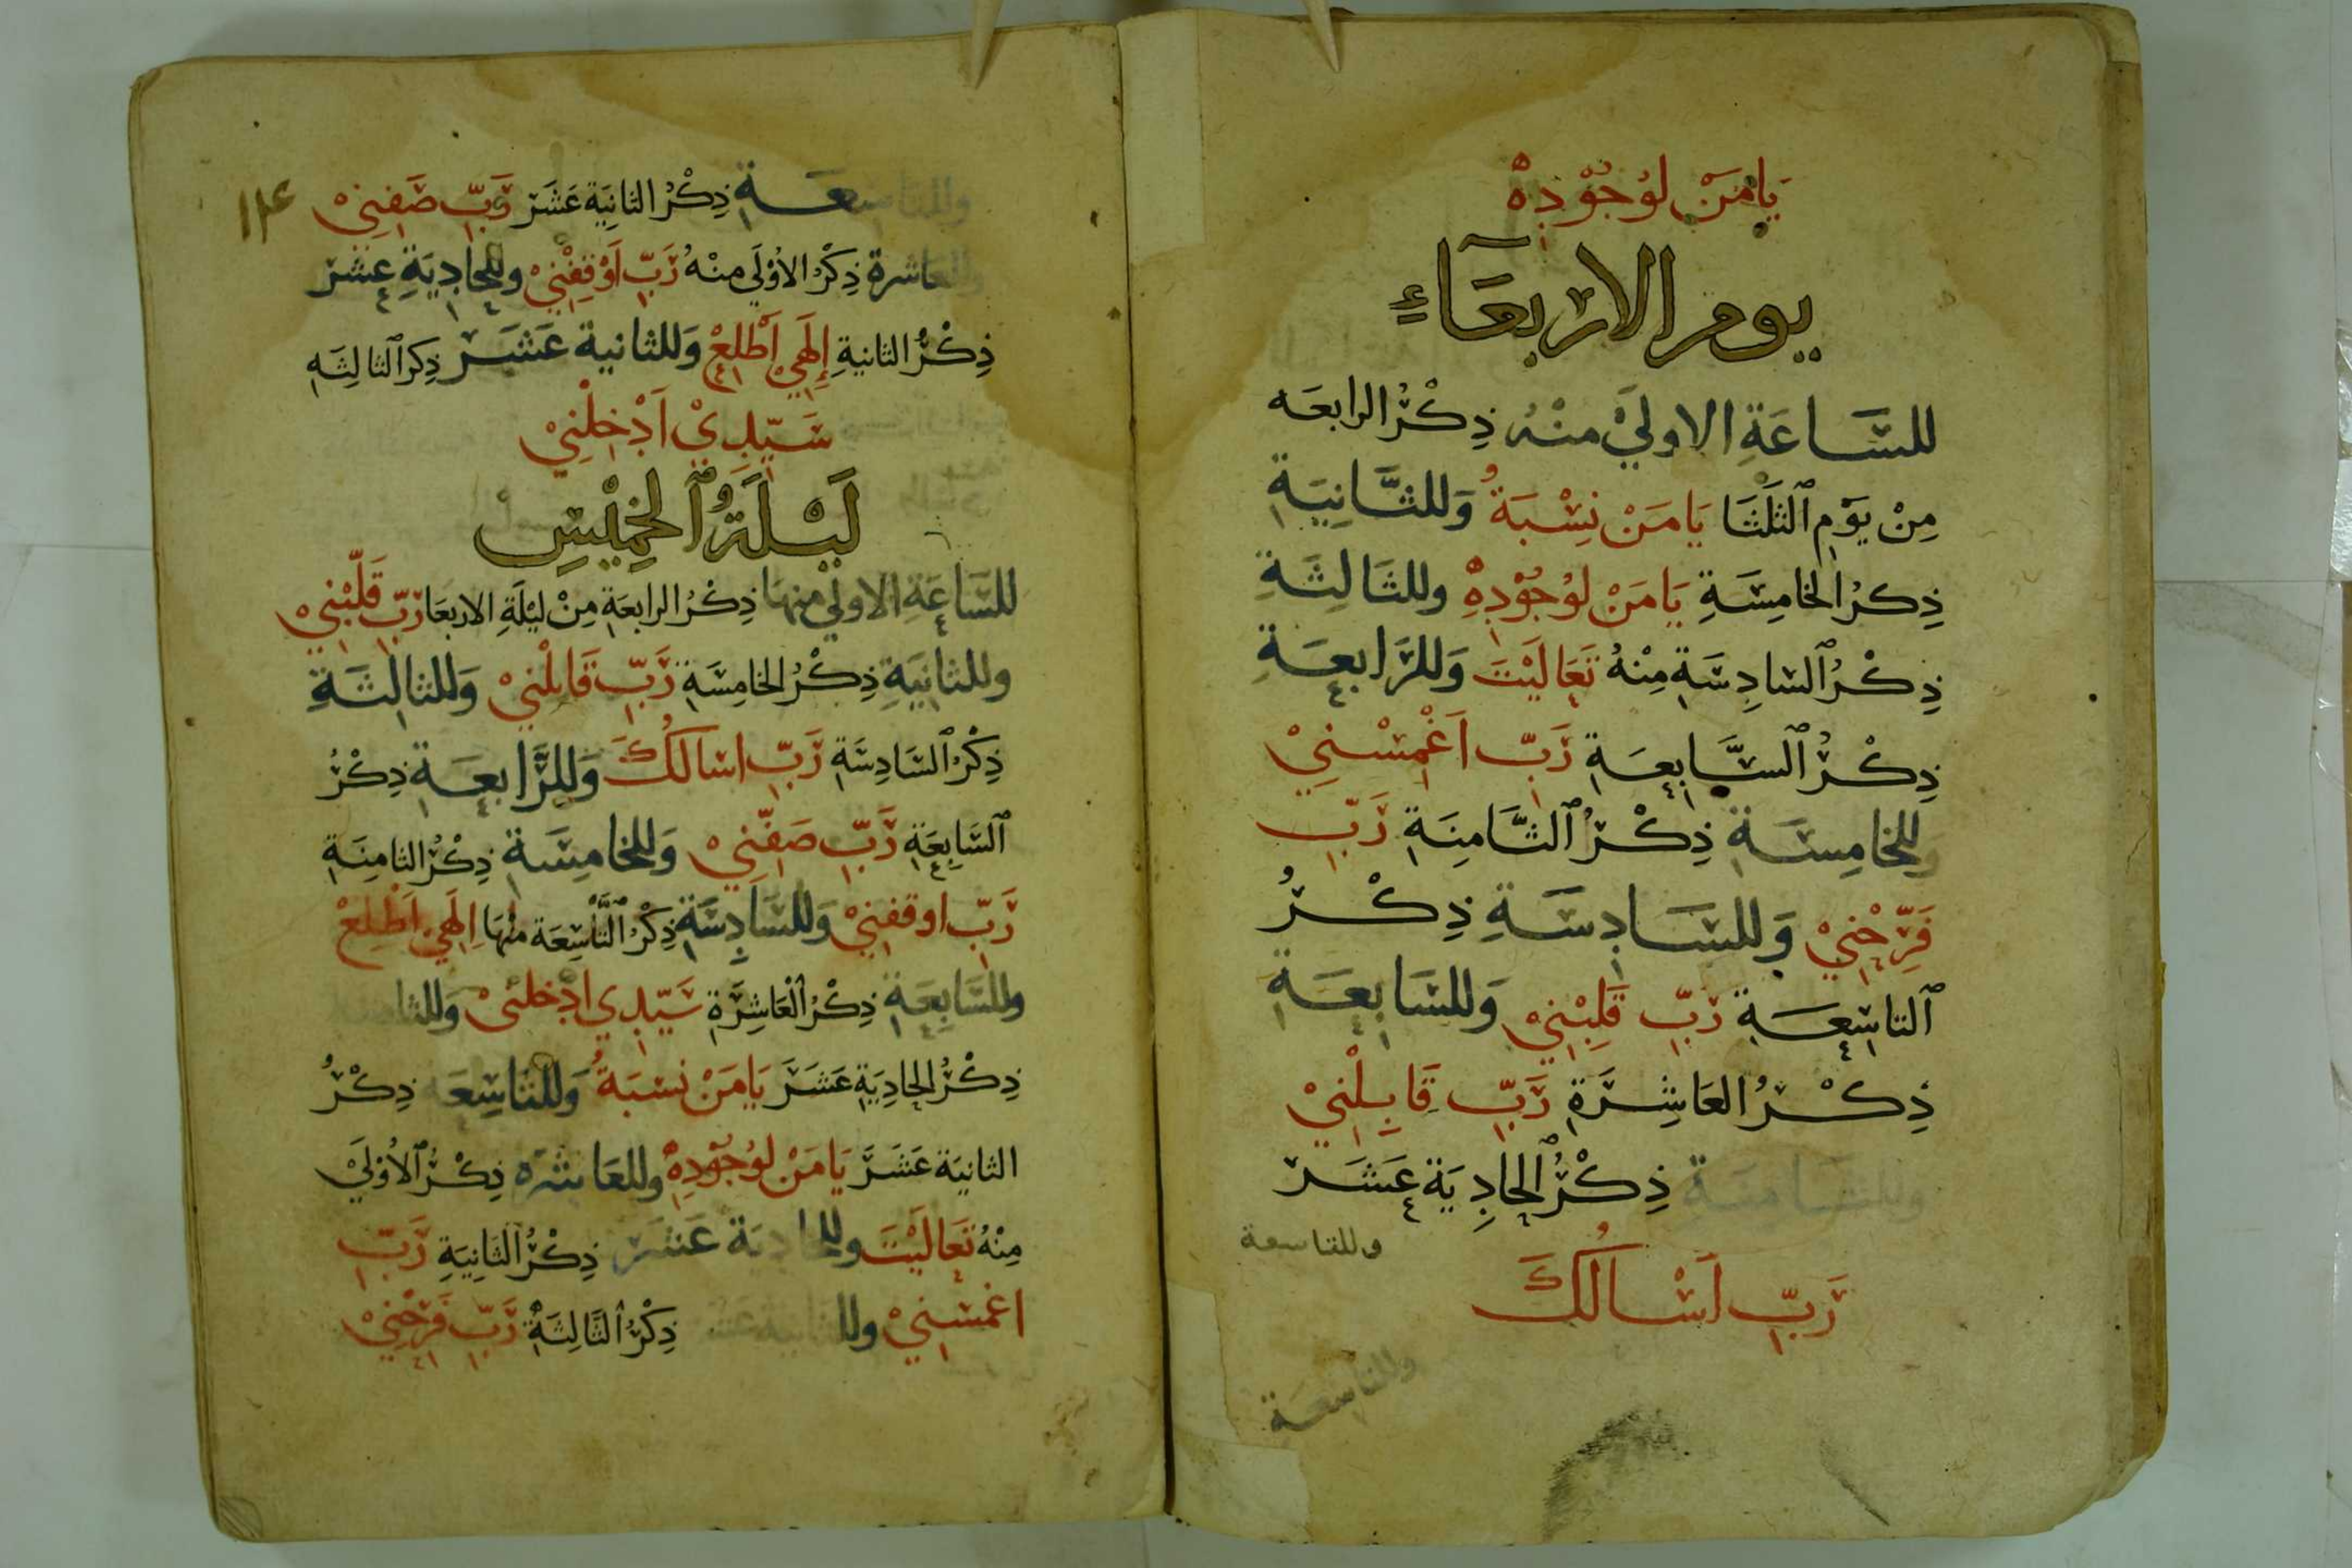 يَا مَنْ لوُجُوْدِهْ
يوم الاربعَآءِ
للسَّاعَةِ الاولَيْ منْهُ ذِكْرُ الرابعَه
مِنْ يَوْمِ الثلَثَا يَا مَنْ نِسْبَةُ وَللثَّانِيَةِ
ذِكرُ الخامِسَةِ يَا مَنْ لوُجُوْدِهْ وللثَالِثَةِ
ذِكْرُ السَادِسَةِ مِنْهُ تَعَالَيْتَ وَللرَّابعَةِ
ذِكْرُ السَّابِعَةِ رَبِّ اَغْمِسْنِيْ
وَللخامِسَةِ ذِكْرُ الثَّامِنَةِ رَبِّ
فَرِّحْنِيْ وَللسَادِسَةِ ذِكْرُ
التاسِعَةِ رَبِّ قَلِبْنِيْ وَللسَابِعَةِ
ذِكْرُ العَاشِرَةِ رَبِّ قَابِلْنِيْ
وللثَامِنَةِ ذِكْرُ الحادِيَةِ عَشَرَ
وللتاسعة
رَبِّ اَسْالُكَ
وللتاسعة
وللتاسِعَةِ ذِكْرُ الثانِيَة عَشَرَ رَبِّ صَفِنِيْ
١٢٤
وللعَاشرة ذِكْرُ الاُوْلَي منْهُ رَبِّ اَوْقِفْنِيْ وللحادِيَةِ عشَر
ذِكْرُ الثانيةِ إِلَهِيْ اَطْلِعْ وَللثانية عَشَر ذِكر الثالِثَه
سَيّدِيْ اَدْخِلْنِيْ
لَيْلَةُ الخمِيْسِ
للسَّاعَةِ الاولَي منها ذِكْرُ الرابعَةِ مِنْ ليْلَةِ الاربعَا رَبِّ قَلّبْنِيْ
وللثانِيَةِ ذِكْرُ الخامِسَةِ رَبِّ قَابلْنِيْ وَللثالثَةِ
ذِكْرُ السَادِسَةِ رَبِّ اسَالُكَ وَللرَّابعَةِ ذِكْرُ
السَابِعَةِ رَبِّ صَفّنِيْ وَللخامِسَةِ ذِكْرُ الثامنَةِ
رَبِّ اوقفنِيْ وَللسَادِسَةِ ذِكْرُ التَّاسِعَة منْهَا اِلَهِيْ اَطْلِعْ
وللسَّابِعَةِ ذِكْرُ العَاشِرَةِ سَيّدِي ادْخلنِيْ وَللثامنة
ذِكْرُ الحادِيَةِ عَشَرَ يَا مَنْ نسْبَةُ وَللتاسِعَة ذِكْرُ
الثانيَة عَشَرَ يَا مَنْ لوُجُوْدِهْ وللعَاشره ذِكْرُ الاُوْلَيْ
مِنْهُ تَعَالَيْتَ وللحادِيَة عَشَر ذِكْرُ الثَانِيَةِ رَبِّ
اغمسْنِيْ وللثانية عشَر ذِكْرُ الثَالِثَةِ رَبِّ فَرِّحْنِيْ